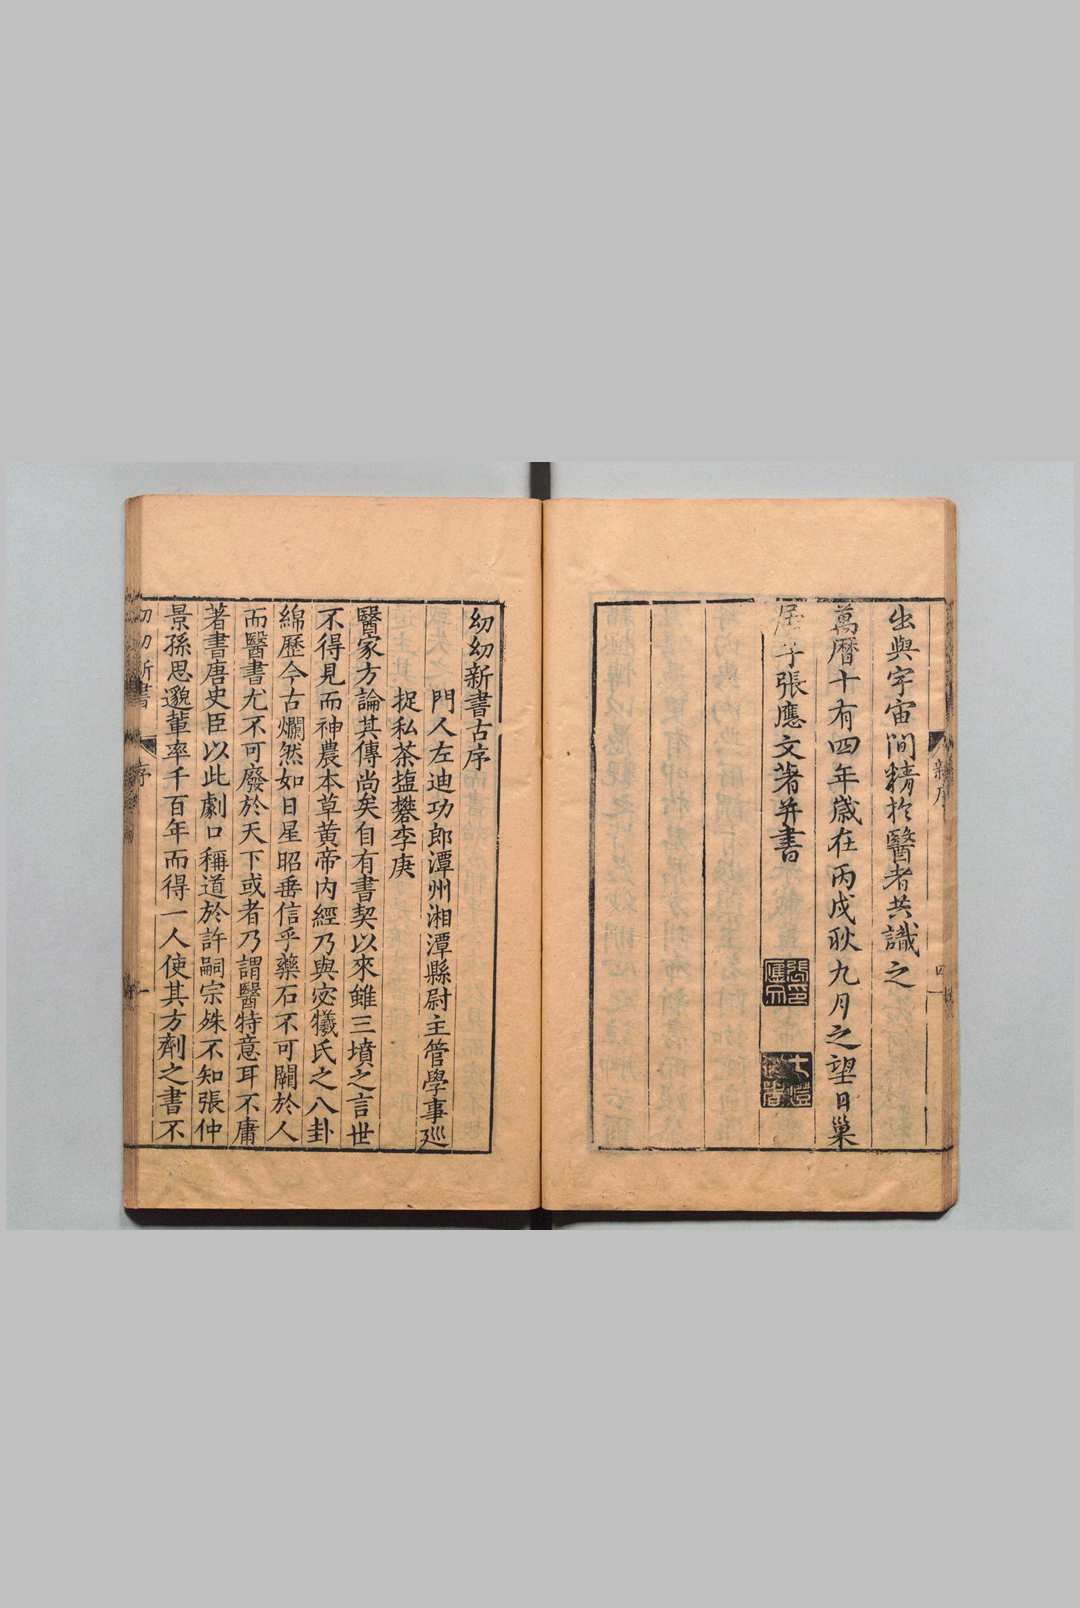 出與宇宙間精於醫者共識之
萬曆十有四年歲在丙戌秋九月之望日巢
居子張應文著并書
張應文印
幼幼新書古序
門人左迪功郎潭州湘潭縣尉主管學事巡
捉私茶塩礬李庚
醫家方論其傳尚矣自有書契以來雖三墳之言世
不得見而神農本草黃帝內經乃與宓犧氏之八卦
綿歷今古爛然如日星昭垂信乎藥石不可闕於人
而醫書尤不可廢於天下或者乃謂醫特意耳不庸
著書唐史臣以此劇口稱道於許嗣宗殊不知張仲
景孫思邈輩率千百年而得一人使其方劑之書不
幼幼新書
序
一